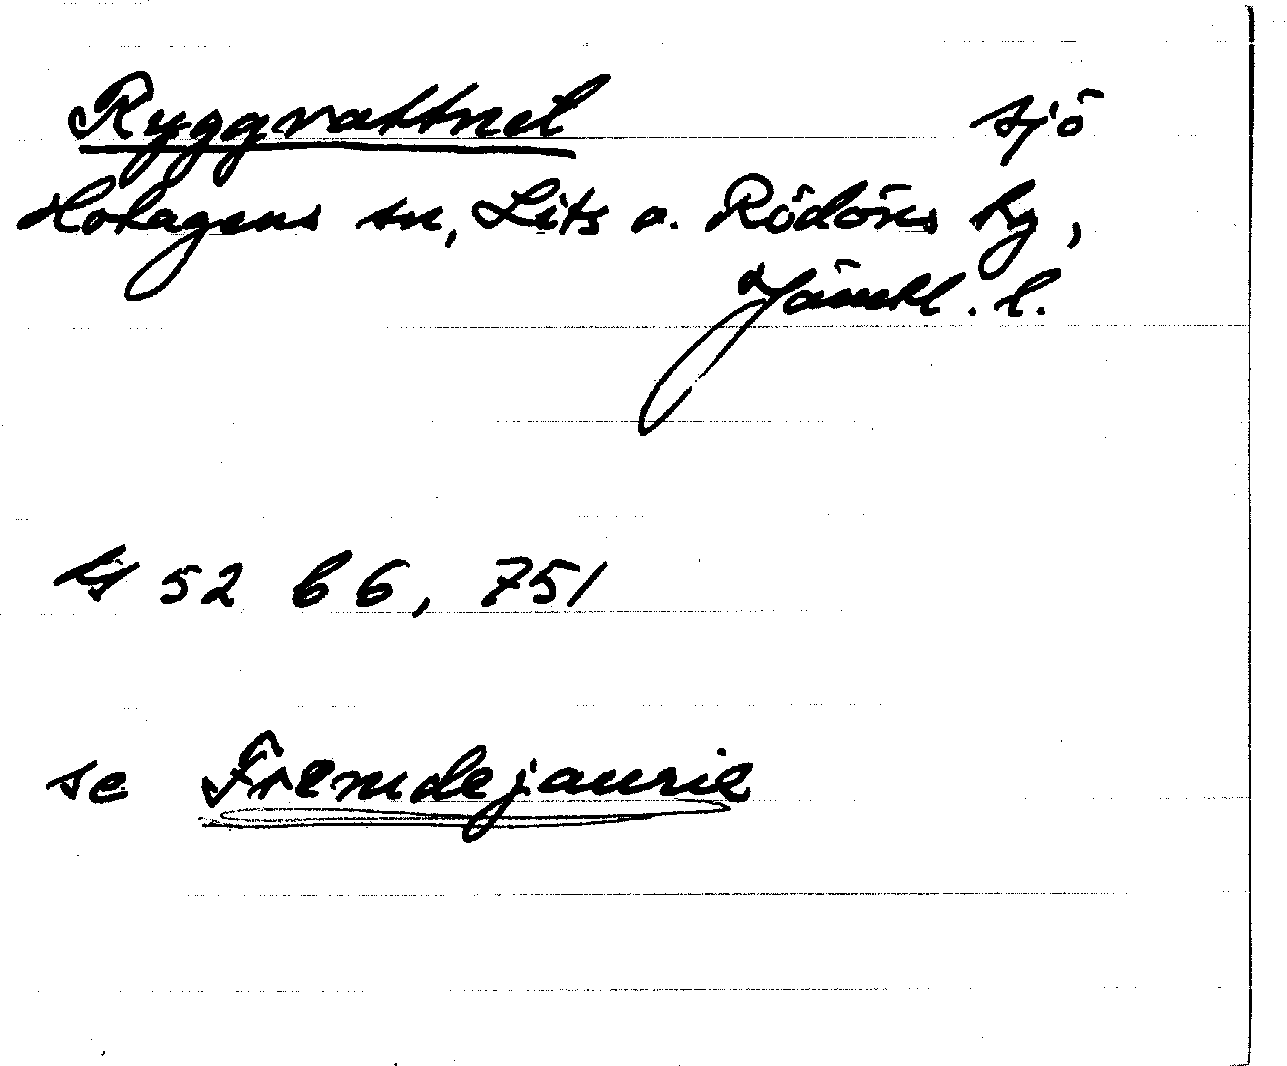 Ryggvattnet sjö
Hotagens sn, Lits o. Rödöns tg,
Jämtl. l.
Ls 52 b 6, 751
se Fremdejaurie